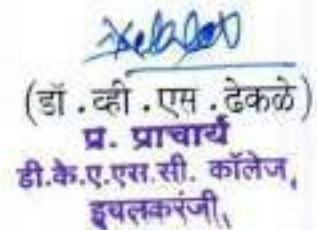 (डॉ . व्ही . एस . ढेकळे)
प्र. प्राचार्य
डी.के.ए.एस.सी. कॉलेज,
इचलकरंजी,